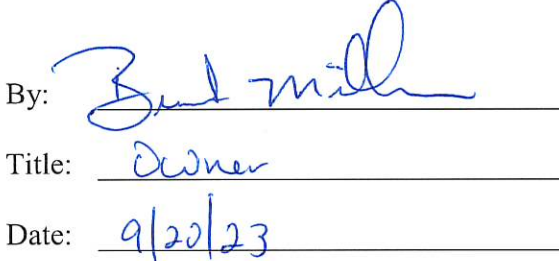 By: Brent Miller
Title: Owner
Date: 9/20/23